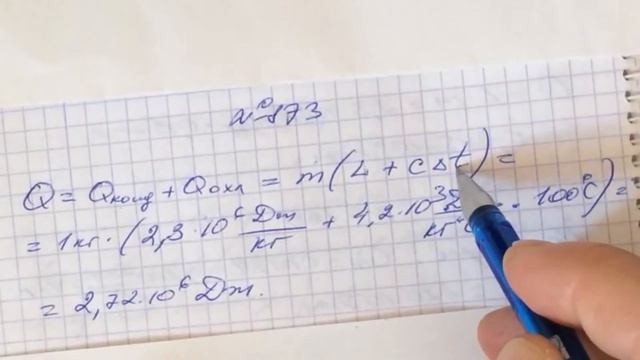 №873
Q = Qконд + Qохл = m(L + cΔt) =
= 1кг·(2,3·10⁶ Дж/кг + 4,2·10³ · 100°C) =
= 2,72·10⁶ Дж.